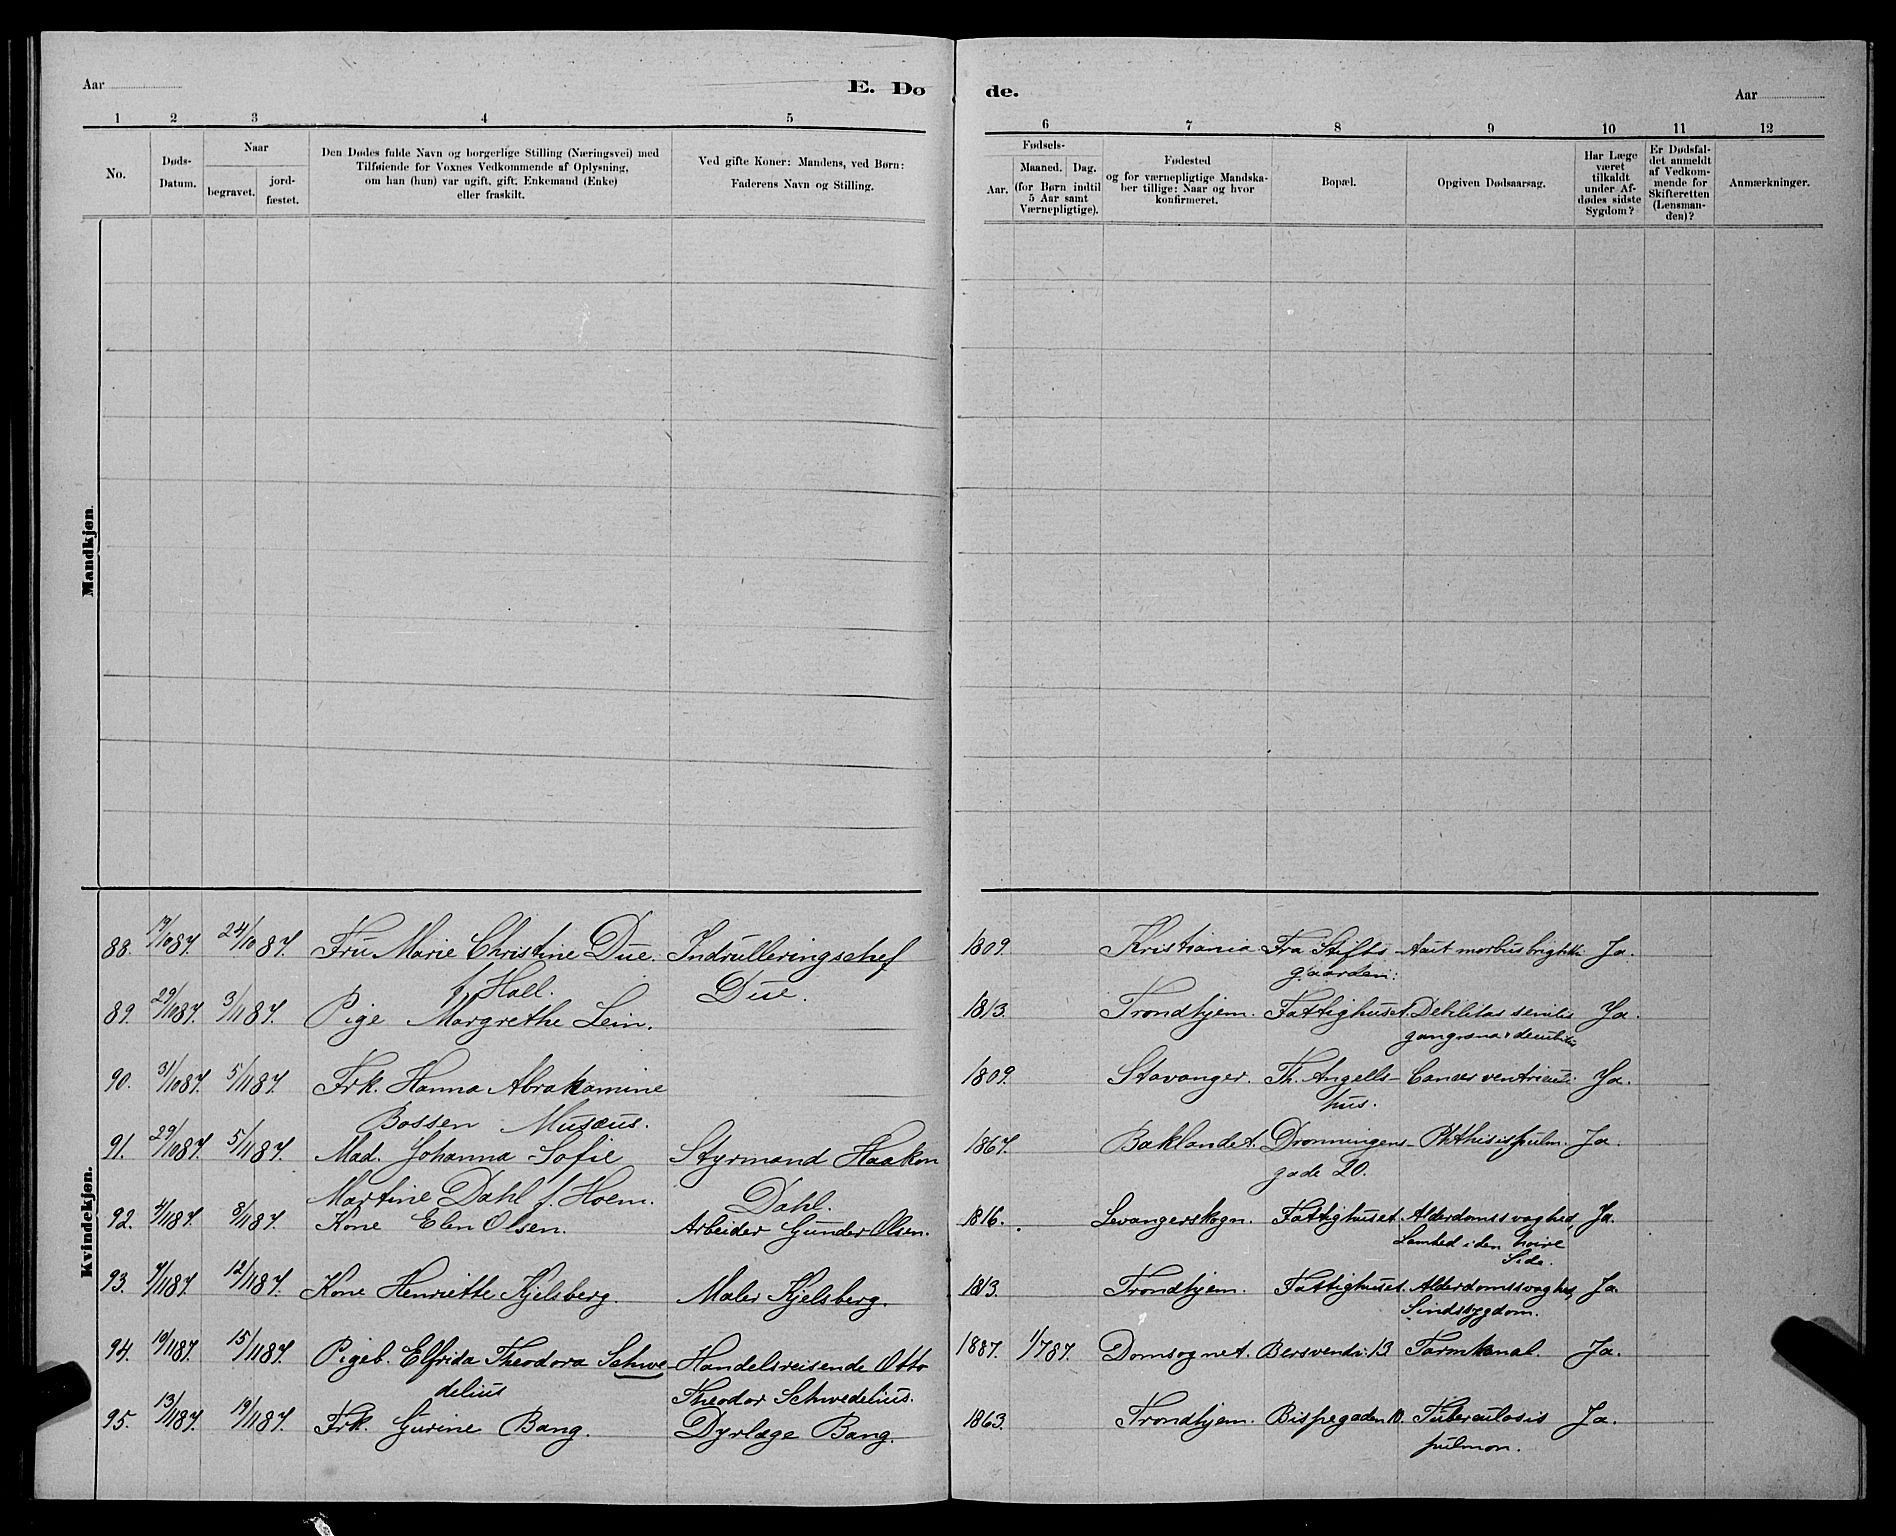 Aar
E. Dø
de.
Aar
1 2 3 4 5
6 7 8 9 10 11 12
No.
Døds-
Datum.
Naar
begravet.
jord-
fæstet.
Den Dødes fulde Navn og borgerlige Stilling (Næringsvei) med
Tilføiende for Voxnes Vedkommende af Oplysning,
om han (hun) var ugift, gift, Enkemand (Enke)
eller fraskilt.
Ved gifte Koner: Mandens, ved Børn:
Faderens Navn og Stilling.
Fødsels-
Aar.
Maaned. Dag.
(for Børn indtil
5 Aar samt
Værnepligtige).
Fødested
og for værnepligtige Mandska-
ber tillige: Naar og hvor
konfirmeret.
Bopæl.
Opgiven Dødsaarsag.
Har Læge
været
tilkaldt
under Af-
dødes sidste
Sygdom?
Er Dødsfal-
det anmeldt
af Vedkom-
mende for
Skifteretten
(Lensman-
den)?
Anmærkninger.
Mandkjøn.
Kvindekjøn.
88. 19/10 87. 24/10 87. Fru Marie Christine Due. Indrulleringschef 1809. Kristiania Fra Stifts- morbus brightii Ja.
f. Holl. Due. gaarden:
89. 29/10 87. 3/11 87. Pige Margrethe Lein. 1813. Trondhjem. Fattighuset. Debilitas senilis Ja.
gangræna decubitus
90. 31/10 87. 5/11 87. Frk. Hanna Abrahamine 1809. Stavanger. Th. Angells- Cancer ventriculi. Ja.
Bossen Musæus. hus.
91. 29/10 87. 5/11 87. Mad. Johanna Sofie Styrmand Haakon 1867. Baklandet. Dronningens Phthisis pulm. Ja.
Martine Dahl f. Hoem. Dahl. gade 20.
92. 4/11 87. 8/11 87. Kone Elen Olsen. Arbeider Gunder Olsen. 1816. Levangerskogn. Fattighuset. Alderdomssvaghed, Ja.
Lamhed i den høire
Side.
93. 7/11 87. 12/11 87. Kone Henriette Kjelsberg. Maler Kjelsberg. 1813. Trondhjem. Fattighuset. Alderdomssvaghed, Ja.
Sindssygdom.
94. 10/11 87. 15/11 87. Pigeb. Elfrida Theodora Schwe Handelsreisende Otto 1887. 1/7 87. Domsognet. Bersvendv. 13 Tarmkanal. Ja.
delius Theodor Schwedelius.
95. 13/11 87. 19/11 87. Frk. Gurine Bang. Dyrlæge Bang. 1863. Trondhjem. Bispegaden 10. Tuberculosis Ja.
pulmon.